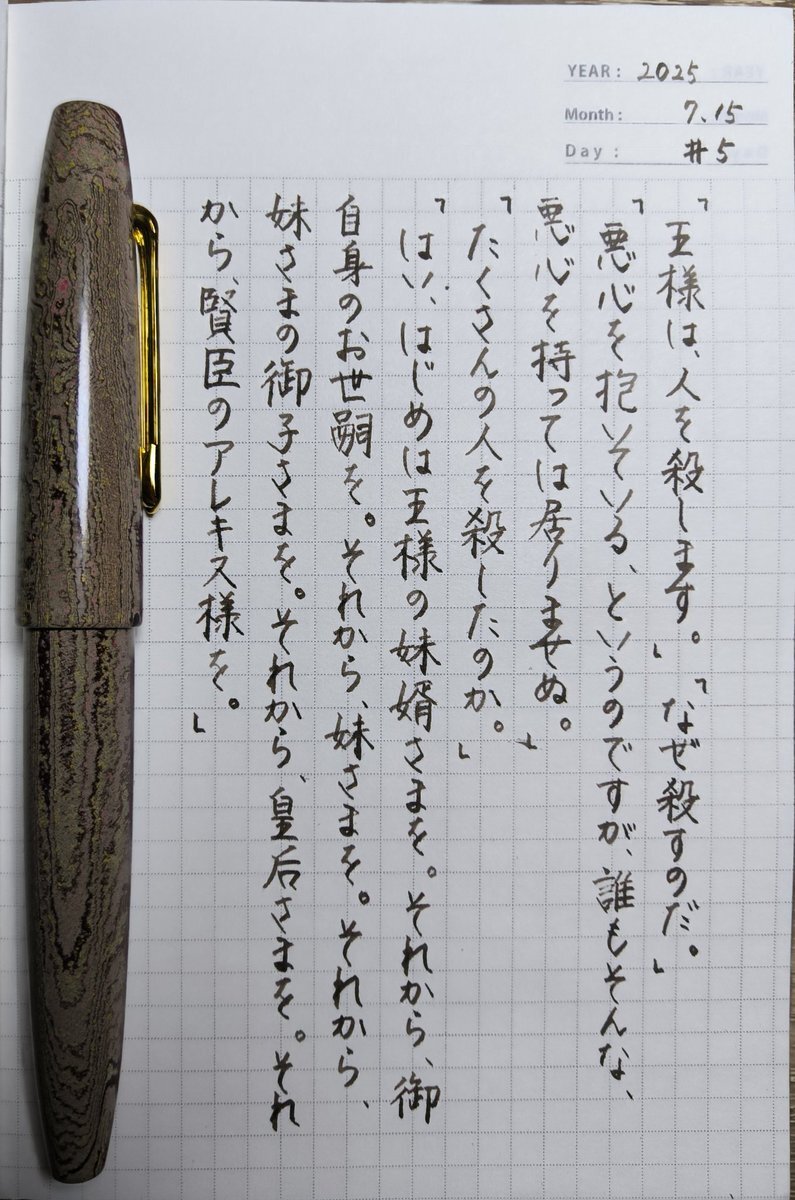 YEAR: 2025
Month: 7.15
Day: #5
「王様は、人を殺します。」「なぜ殺すのだ。」
「悪心を抱いている、というのですが、誰もそんな、
悪心を持っては居りませぬ。」
「たくさんの人を殺したのか。」
「はい、はじめは王様の妹婿さまを。それから、御
自身のお世嗣を。それから、妹さまを。それから、
妹さまの御子さまを。それから、皇后さまを。それ
から、賢臣のアレキス様を。」